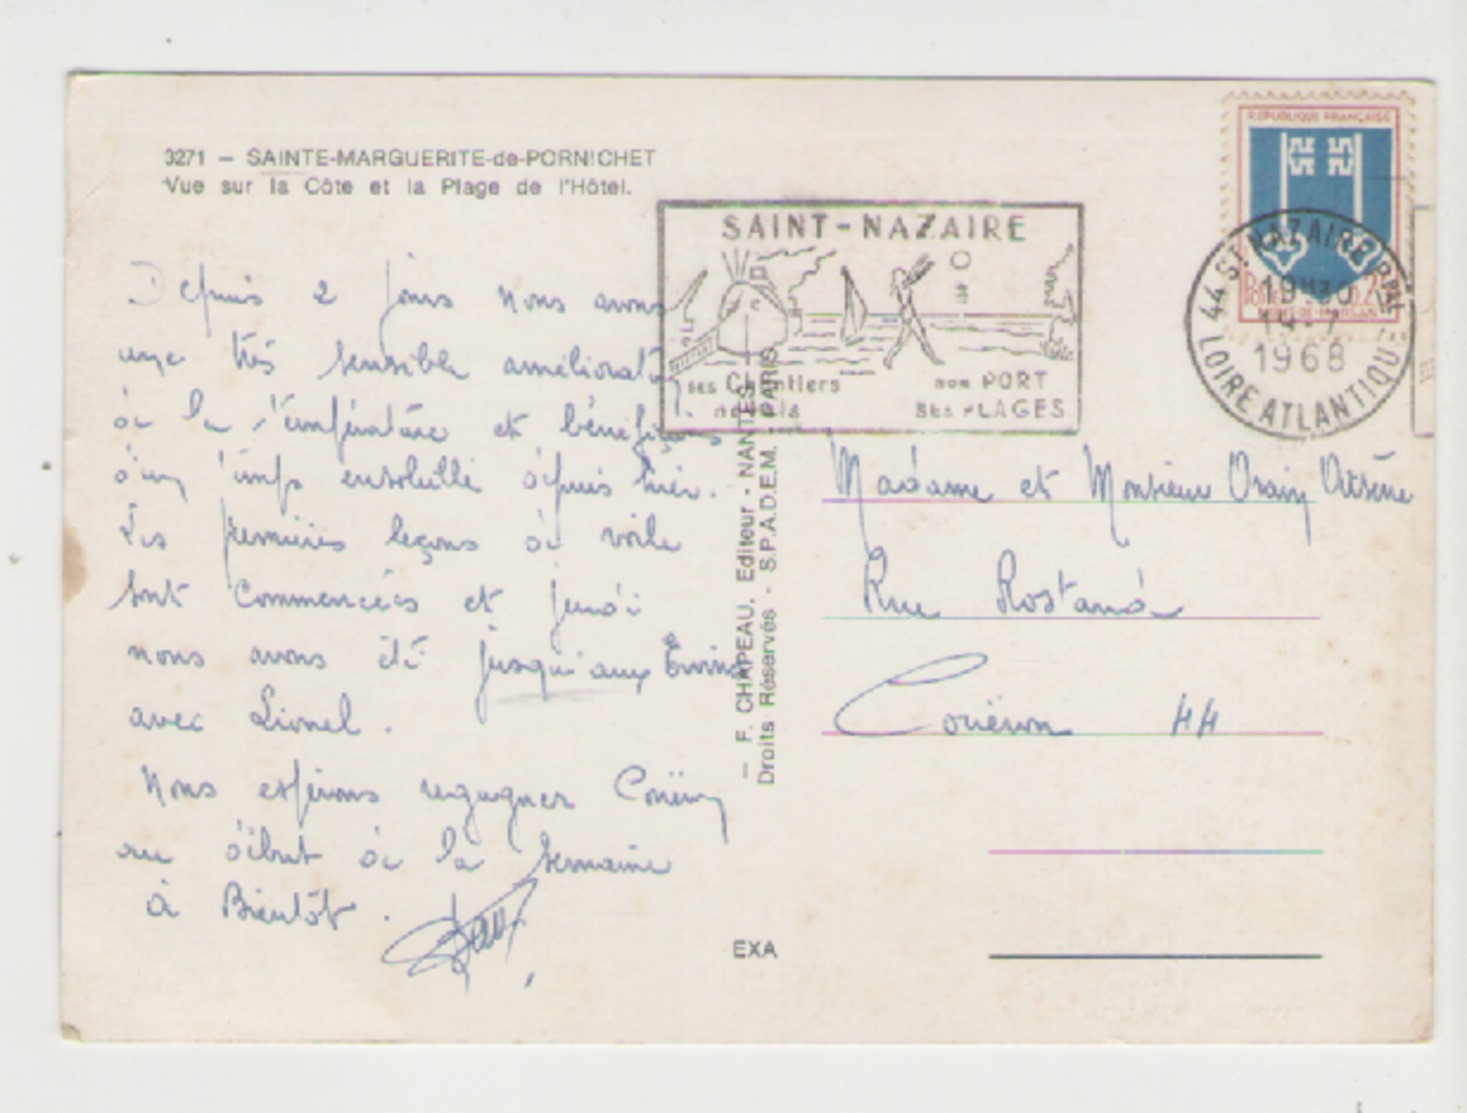 3271 — SAINTE-MARGUERITE-de-PORNICHET
Vue sur la Côte et la Plage de l'Hôtel.
Depuis 2 jours nous avons
une très sensible améliorat
de la température et bénéficions
d'un temps ensoleillé depuis hier.
Les premières leçons de voile
sont commencées et jeudi
nous avons été jusqu'aux Evens
avec Lionel.
Nous espérons regagner Couëron
au début de la semaine
à Bientôt.
SAINT-NAZAIRE
ses Chantiers
navals
son PORT
SES PLAGES
REPUBLIQUE FRANÇAISE
MONT-DE-MARSAN
44 ST NAZAIRE PPAL
19H30
14-7
1968
LOIRE ATLANTIQUE
— F. CHAPEAU. Editeur - NANTES
Droits Réservés - S.P.A.D.E.M. PARIS
Madame et Monsieur Orain Arsène
Rue Rostand
Couëron 44
EXA